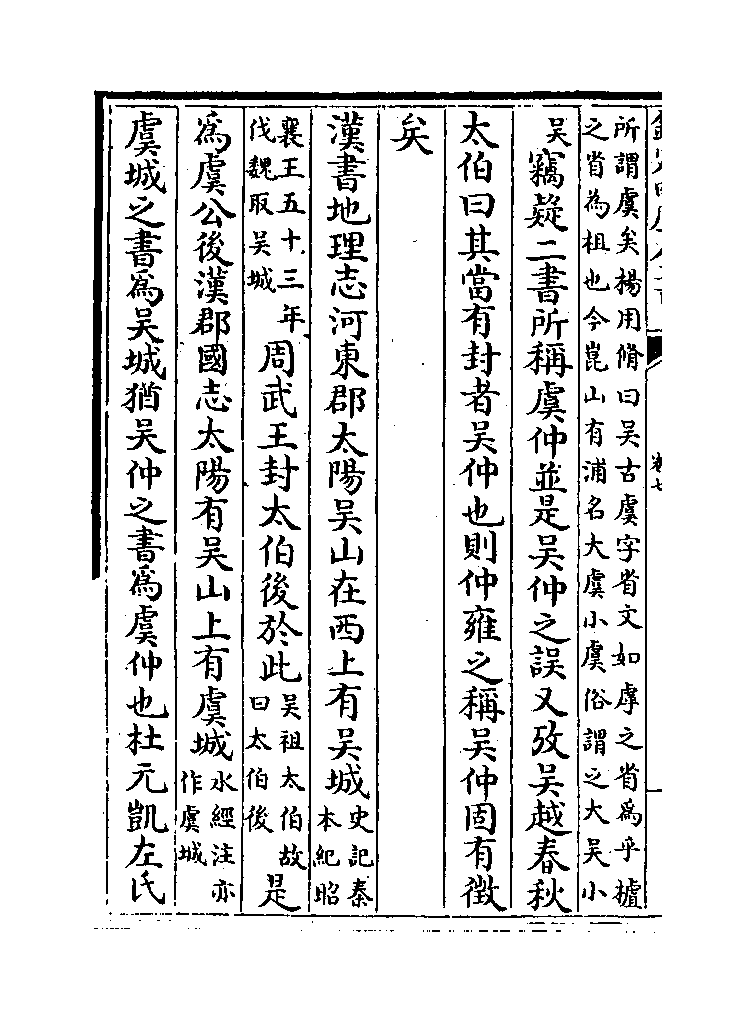 所謂虞矣楊用脩曰吴古虞字省文如虖之省為乎櫨
之省為柤也今崑山有浦名大虞小虞俗謂之大吴小
吴竊疑二書所稱虞仲並是吴仲之誤又攷吴越春秋
太伯曰其當有封者吴仲也則仲雍之稱吴仲固有徵
矣
漢書地理志河東郡太陽吴山在西上有吴城史記秦本紀昭
襄王五十三年伐魏取吴城周武王封太伯後於此吴祖太伯故曰太伯後是
為虞公後漢郡國志太陽有吴山上有虞城水經注亦作虞城
虞城之書為吴城猶吴仲之書為虞仲也杜元凱左氏
卷七